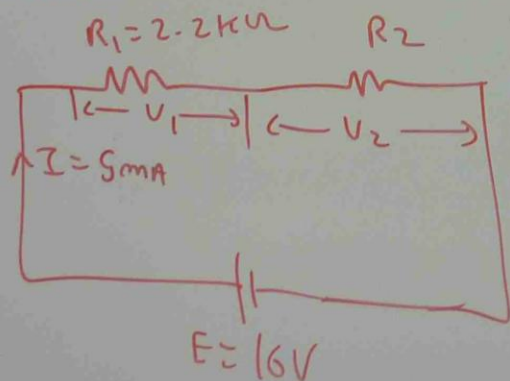 R1=2.2KΩ R2
V1 V2
I=5mA
E=16V